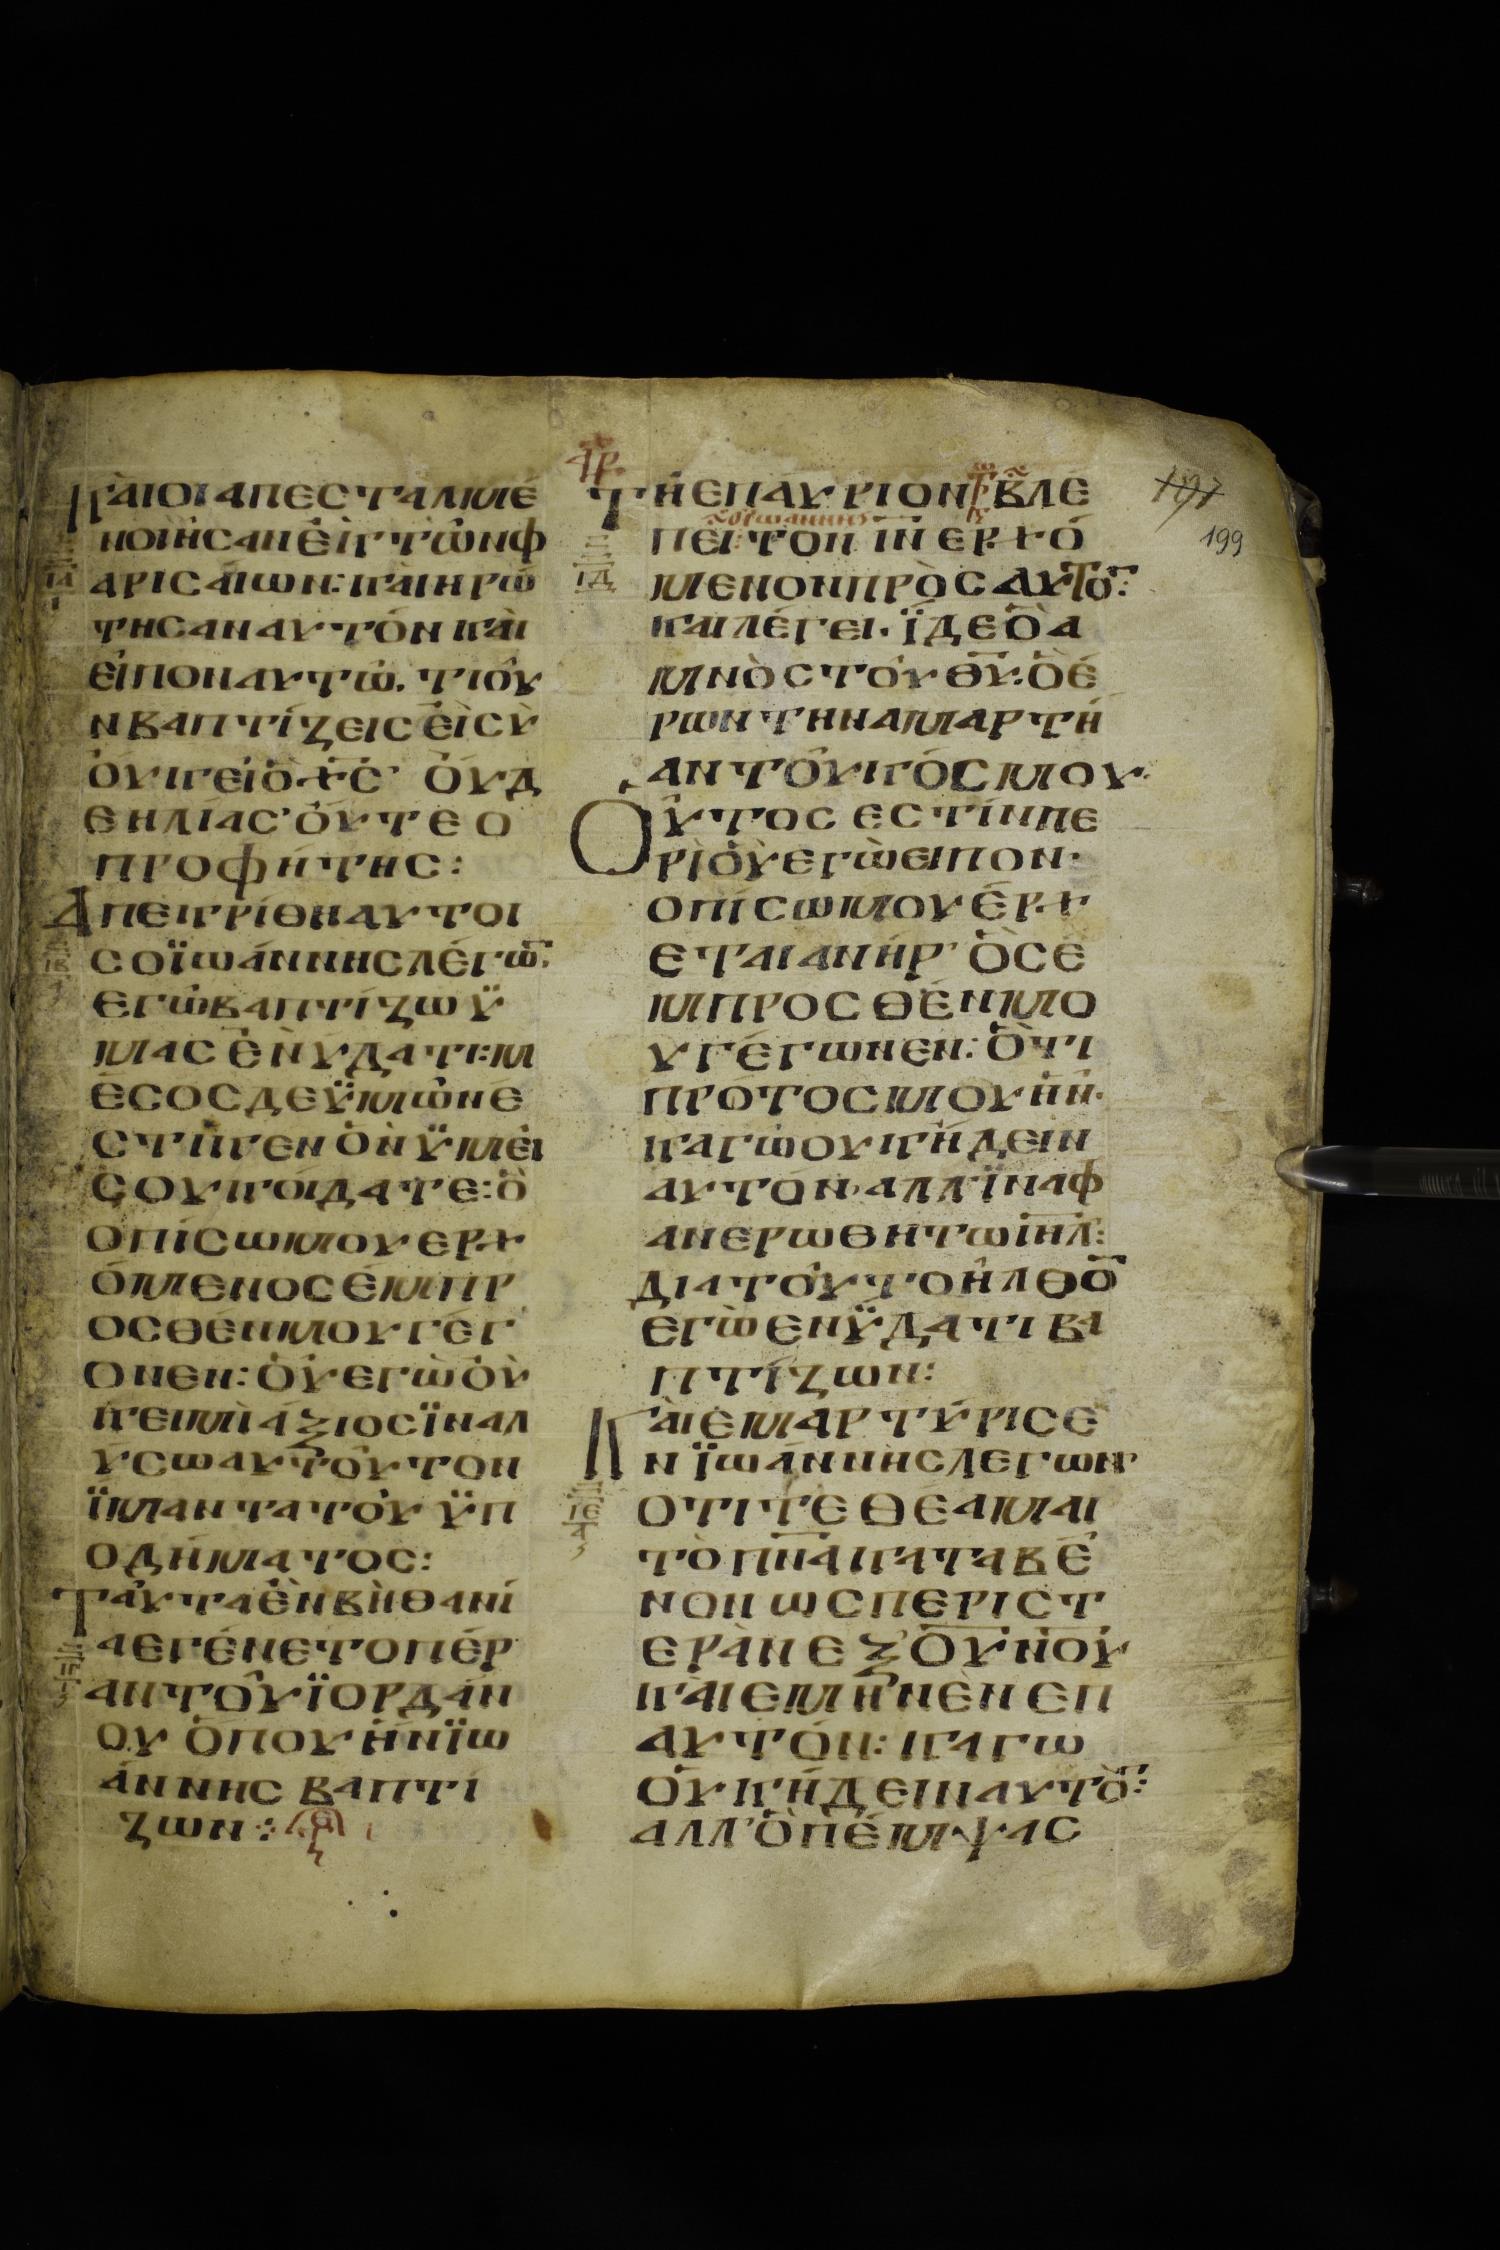 ΚᾺΙΟΙΑΠΕΣΤΑΛΜΈ
ΝΟΙἮΣΑΝἘΚΤΩ͂ΝΦ
ΑΡΙΣΑΊΩΝ: ΚΑῚΗΡΏ
ΤΗΣΑΝΑΥΤΌΝΚΑῚ
ΕἾΠΟΝΑΥΤΩ͂. ΤΙΟΥ͂
ΝΒΑΠΤΊΖΕΙΣΕΙΣῪ
ΟΥΚΕΙὉΧ̅Σ̅ ΟΥΔ
ΕΗΛΊΑΣ ΟΎΤΕΟ
ΠΡΟΦΉΤΗΣ:
ΑΠΕΚΡΊΘΗΑΥΤΟΙ
ΣΟΪΩΆΝΝΗΣΛΈΓΩ̅:
ΕΓῺΒΑΠΤΊΖΩΫ
ΜΑΣἘΝΥΔΑΤΙ: Μ
ΈΣΟΣΔΕΫΜΩ͂ΝΕ
ΣΤΙΚΕΝΟΝΫΜΕΙ
ΣΟΥΚΟΙΔΑΤΕ: Ὃ
ΟΠΊΣΩΜΟΥΕΡΧ
ΌΜΕΝΟΣΈΜΠΡ
ΟΣΘΈΝΜΟΥΓΈΓ
ΟΝΕΝ: ΟΥΕΓῺΟΥ
ΚΕΙΜῚΆΞΙΟΣΪΝΑΛ
ΎΣΩΑΥΤΟΥ͂ΤΟΝ
ΪΜΑΝΤΑΤΟΥ͂ΫΠ
ΟΔΉΜΑΤΟΣ:
ΤΑΥ͂ΤΑἘΝΒΗΘΑΝΊ
ΑΕΓΈΝΕΤΟΠΈΡ
ΑΝΤΟΥ͂ΪΟΡΔΆΝ
ΟΥ ὍΠΟΥἮΝΪΩ
ΆΝΝΗΣ ΒΑΠΤΊ
ΖΩΝ:
ΑΡ
ΤΗΕΠΑΎΡΙΟΝ ΒΛΈ
ΠΕΙ: ΤΟΝ Ι̅Ν̅ ΕΡΧΌ
ΜΕΝΟΝΠΡῸΣΑΥΤΟ̅:
ΚΑΙΛΈΓΕΙ. ΪΔΕὉΑ
ΜΝῸΣΤΟΥ͂Θ̅Υ̅: ὉΈ
ΡΩΝΤΗΝΑΜΑΡΤΉ
ΑΝΤΟΥ͂ΚΌΣΜΟΥ.
ΟΥ͂ΤΟΣΕΣΤΊΝΠΕ
ΡῚΟΥ͂ΕΓῺΕΙΠΟΝ.
ΟΠΊΣΩΜΟΥΈΡΧ
ΕΤΑΙΑΝΉΡ ὉΣΕ
ΜΠΡΟΣΘΈΝΜΟ
ΥΓΈΓΩΝΕΝ: ὍΤΙ
ΠΡΌΤΟΣΜΟΥἮΝ.
ΚΑΓῺΟΥΚΉΔΕΙΝ
ΑΥΤΟΝ, ΑΛΛ'ΪΝΑΦ
ΑΝΕΡΩΘΗΤΩΙ̅Η̅Λ̅:
ΔΙΑΤΟΥ͂ΤΟΗ͂ΛΘΟ̅
ΕΓῺΕΝΫΔΑΤΙΒΑ
ΠΤΊΖΩΝ:
ΚᾺΙΕΜΑΡΤΎΡΙΣΕ
ΝΪΩΆΝΝΗΣΛΕΓΩΝ
ΟΤΙΤΕΘΈΑΜΑΙ
ΤῸΠ̅Ν̅Α̅ΚΑΤΑΒΕ
ΝΟΝΩΣΠΕΡΙΣΤ
ΕΡᾺΝΕΞΟ̅Υ̅Ν̅ΟΥ
ΚᾺΙΕΜΗΝΕΝΕΠ
ΑΥΤΌΝ: ΚΑΓΩ
ΟΥΚΉΔΕΙΝΑΥΤΟ̅:
ΑΛΛ'ὉΠΈΜΨΑΣ
197
199
ΙΑ
ΙΒ
ΙΔ
ΙΕ